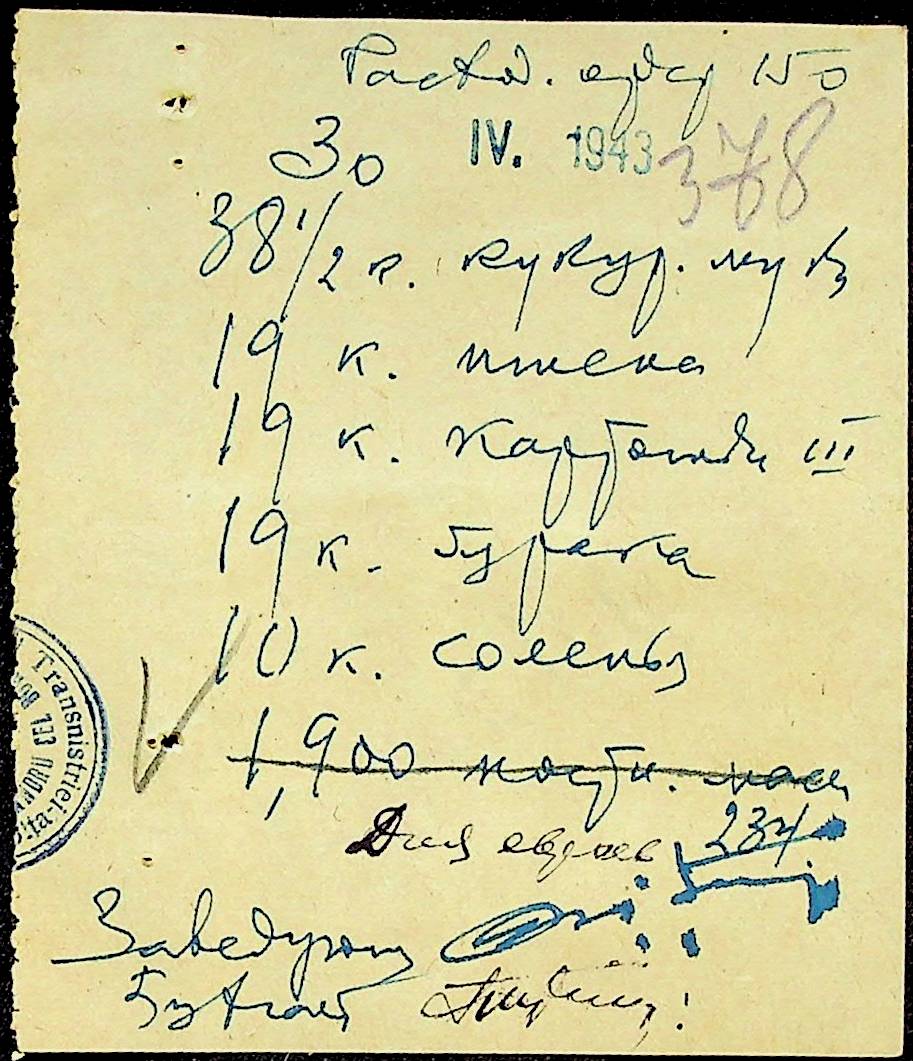 Расход. ордер 150
30 IV. 1943
378
38 1/2 к. кукур. муки
19 к. пшена
19 к. картошки III
19 к. бурака
10 к. соленья
1,900 мас
Для евреев 234
Заведующ
Бухгалт
Transnistriei